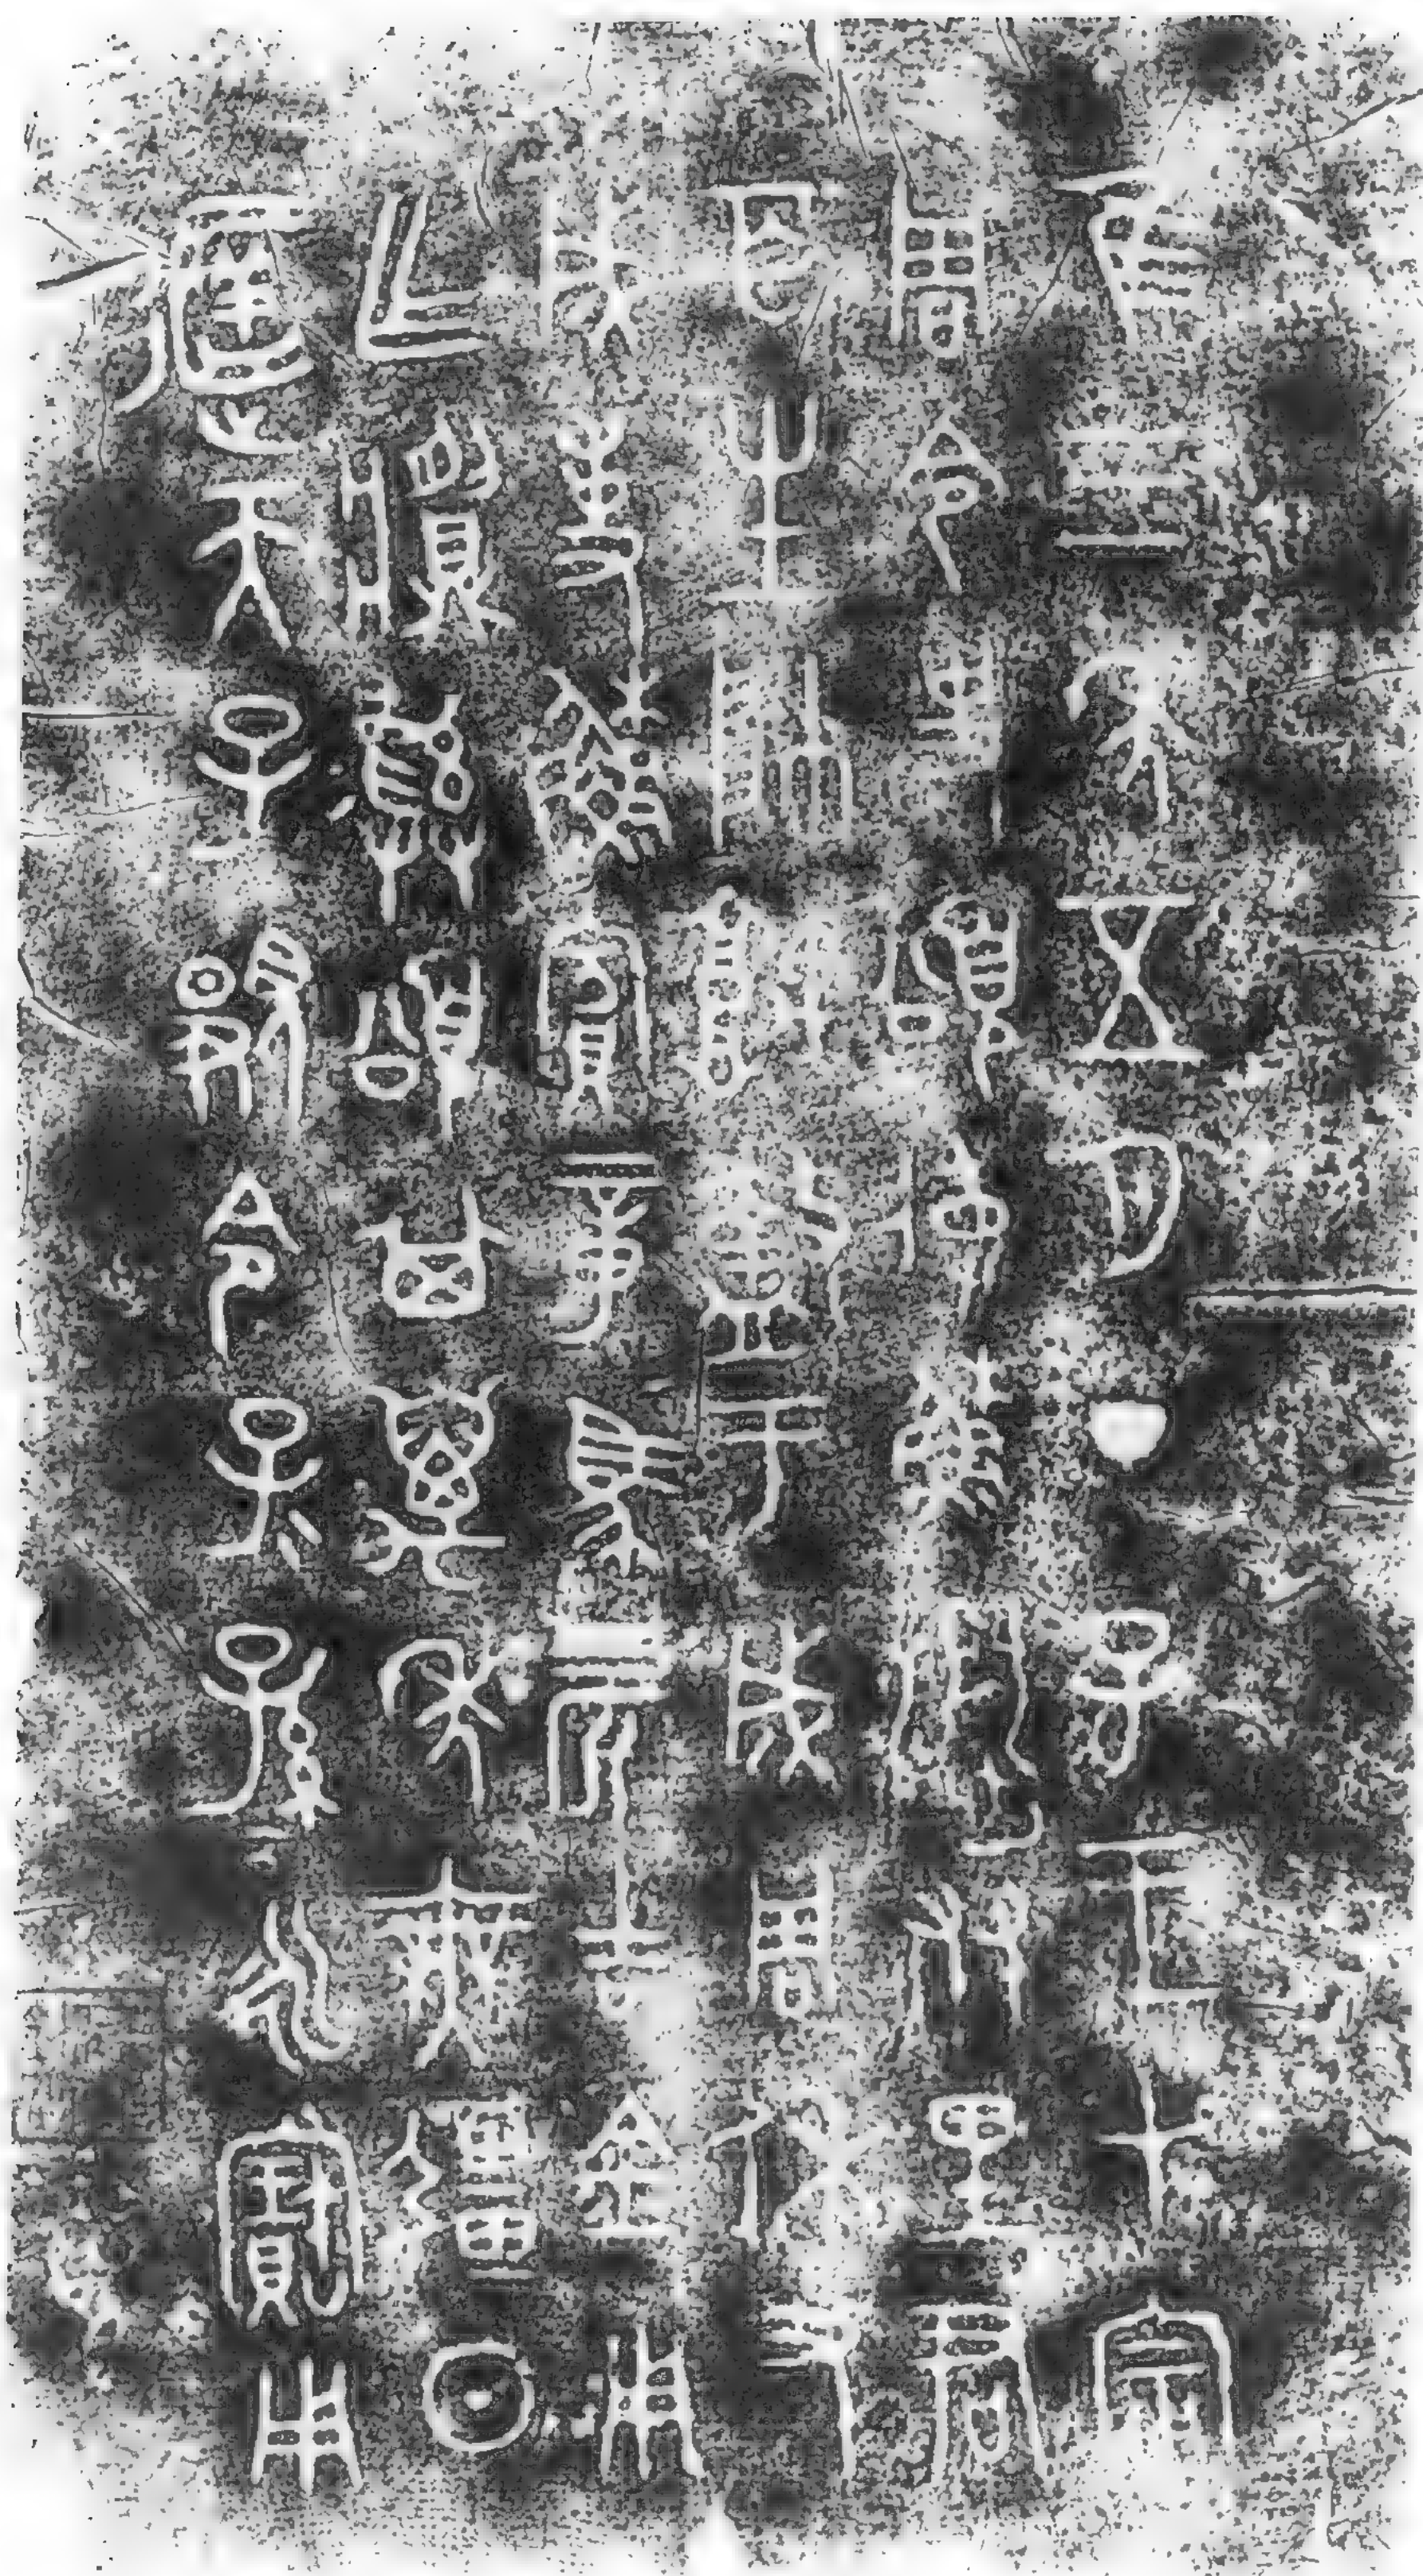 隹三年五月丁巳王才宗
周令史頌省蘇𡣬友里君
百生帥堣盩于成周休又
成事蘇賓章馬四匹吉金用
乍䵼彝頌其萬年無疆日
𨒌天子顯令子子孫孫永寶用